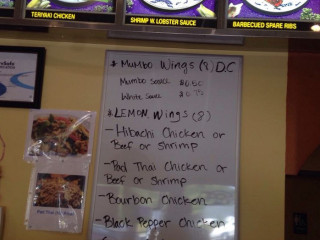 TERIYAKI CHICKEN
SHRIMP W. LOBSTER SAUCE
BARBECUED SPARE RIBS
* Mumbo Wings (8) D.C
Mumbo Sauce $0.50
White Sauce $0.75
* LEMON Wings (8)
- Hibachi Chicken or
Beef or Shrimp
- Pad Thai Chicken or
Beef or Shrimp
- Bourbon Chicken
- Black Pepper Chicken